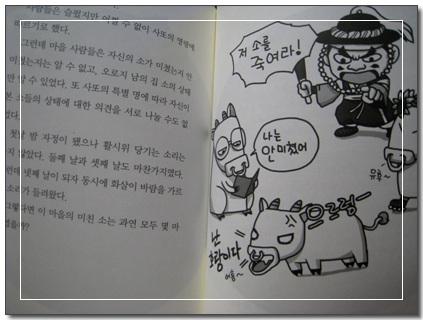 사람들은 슬펐지만 어쩔 수 없이 사또의 명령에
르기로 했다.
그런데 마을 사람들은 자신의 소가 미쳤는지 안
미쳤는지는 알 수 없고, 오로지 남의 집 소의 상태
만 알 수 있었다. 또 사또의 특별 명에 따라 자신이
본 소들의 상태에 대한 의견을 서로 나눌 수도 없
었다.
첫날 밤 자정이 됐으나 활시위 당기는 소리는
지 않았다. 둘째 날과 셋째 날도 마찬가지였다.
런데 넷째 날이 되자 동시에 화살이 바람을 가르
소리가 들려왔다.
그렇다면 이 마을의 미친 소는 과연 모두 몇 마
저 소를
죽여라!
나는
안 미쳤어
음머~
으르렁~
난
호랑이다
어흥~